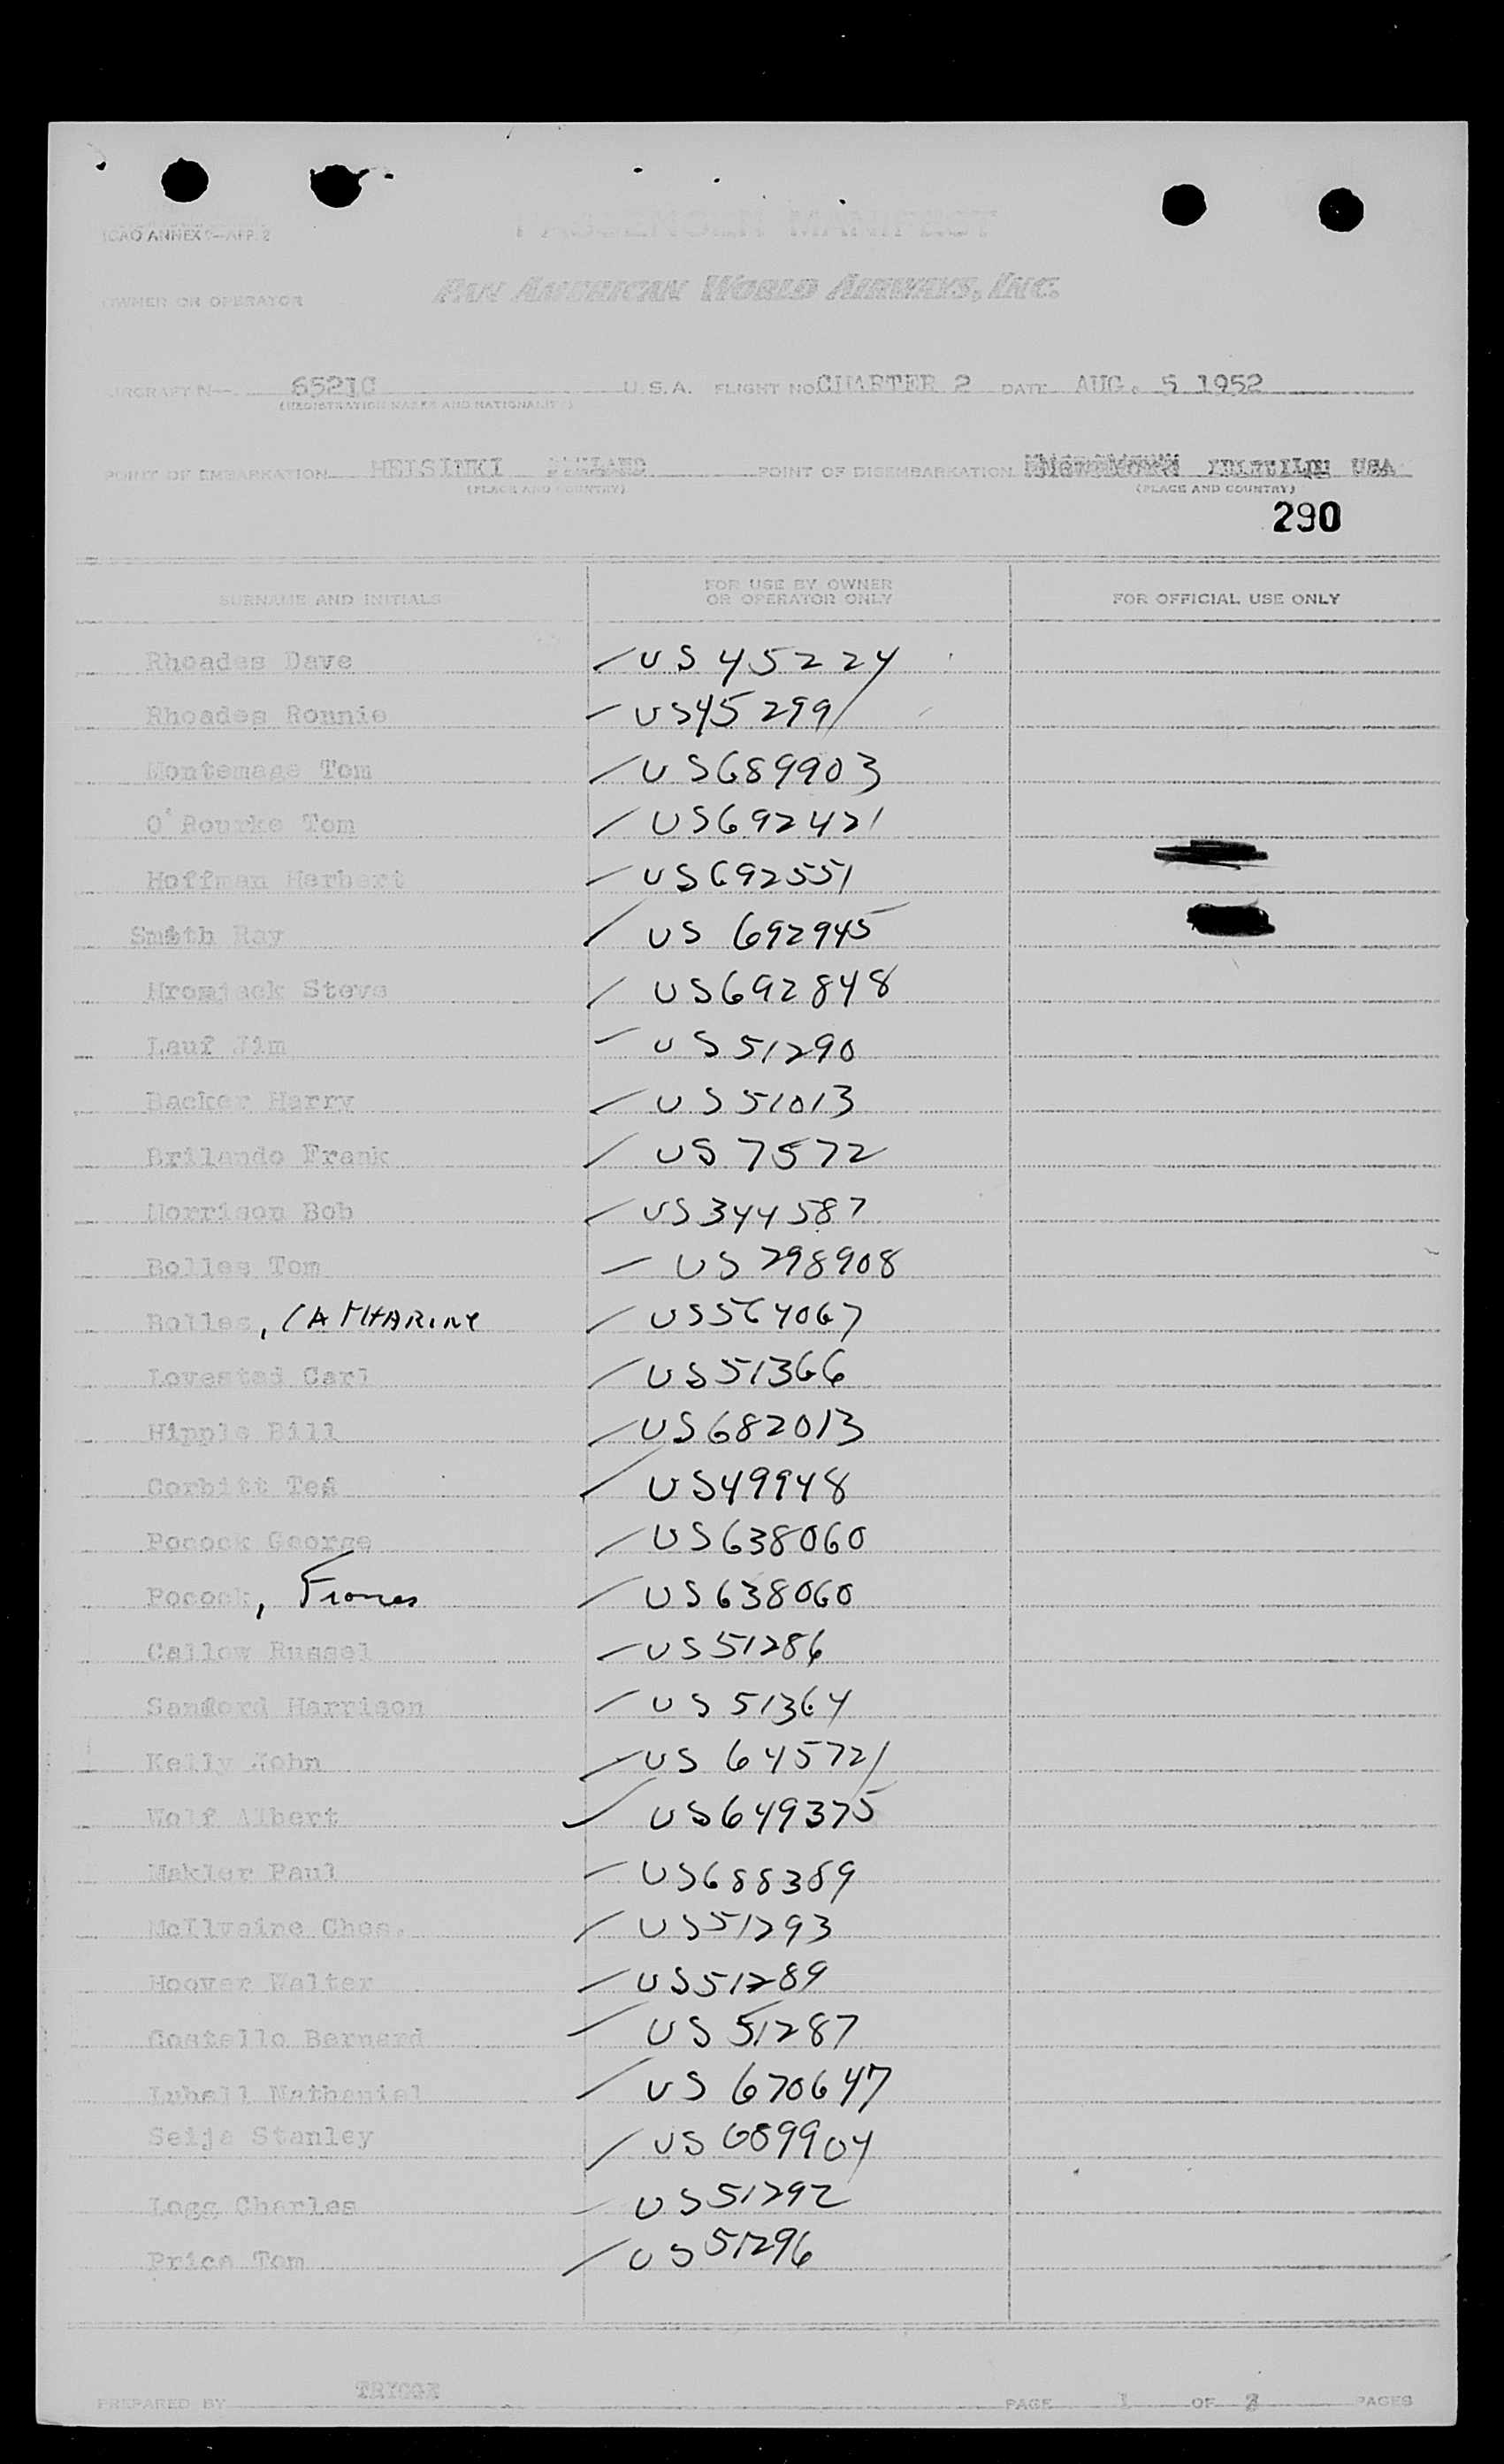 ICAO ANNEX 9—APP. 2
PASSENGER MANIFEST
OWNER OR OPERATOR PAN AMERICAN WORLD AIRWAYS, INC.
AIRCRAFT N— 6521C U.S.A. FLIGHT NO. CHARTER 2 DATE AUG. 5 1952
(REGISTRATION MARKS AND NATIONALITY)
POINT OF EMBARKATION HELSINKI POINT OF DISEMBARKATION USA
(PLACE AND COUNTRY) (PLACE AND COUNTRY)
290
SURNAME AND INITIALS FOR USE BY OWNER OR OPERATOR ONLY FOR OFFICIAL USE ONLY
Rhoades Dave US 45224
Rhoades Ronnie US45299
Montemage Tom US689903
O'Rourke Tom US692421
Hoffman Herbert US692551
Smith Ray US 692945
Hromjack Steve US692848
Lauf Jim US51290
Backer Harry US51013
Brilando Frank US 7572
Morrison Bob US344587
Bolles Tom US 298908
Bolles, CATHARINE US564067
Lovested Carl US51366
Hipple Bill US682013
Corbitt Ted US49948
Pocock George US638060
Pocock, Frances US638060
Callow Russel US51286
Sanford Harrison US 51364
Kelly John US 645721
Wolf Albert US649375
Makler Paul US688389
McIlvaine Chos. US51293
Hoover Walter US51289
Costello Bernard US 51287
Lubell Nathaniel US 670647
Seija Stanley US 689904
Logg Charles US51292
Price Tom US51296
PREPARED BY TRIGGE PAGE 1 OF PAGES